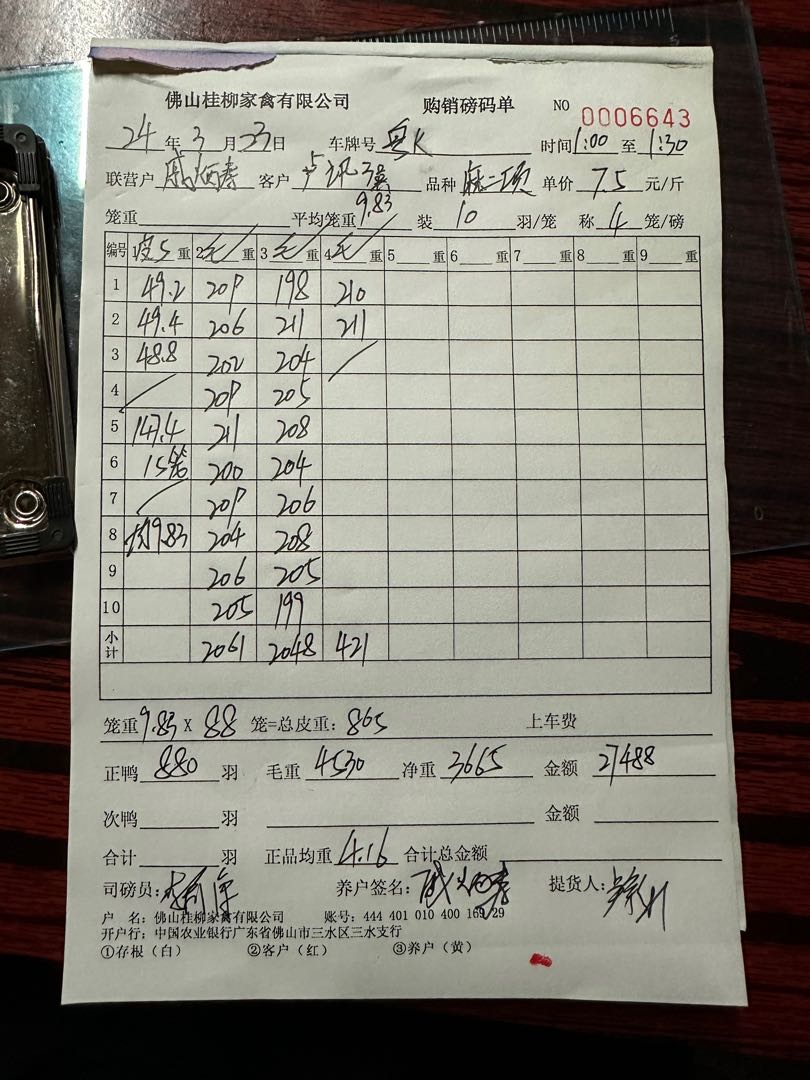 佛山桂柳家禽有限公司 购销磅码单 NO 0006643
24 年 3 月 23 日 车牌号 粤K 时间 1:00 至 1:30
联营户 客户 品种 麻二项 单价 7.5 元/斤
笼重 平均笼重 9.83 装 10 羽/笼 称 4 笼/磅
编号 皮5 重 2 毛 重 3 毛 重 4 毛 重 5 重 6 重 7 重 8 重 9 重
1 49.2 209 198 210
2 49.4 206 211 211
3 48.8 202 204
4 209 205
5 147.4 211 208
6 15笼 200 204
7 209 206
8 均9.83 204 208
9 206 205
10 205 199
小计 2061 2048 421
笼重 9.83 X 88 笼=总皮重: 865 上车费
正鸭 880 羽 毛重 4530 净重 3665 金额 27488
次鸭 羽 金额
合计 羽 正品均重 4.16 合计总金额
司磅员: 养户签名: 提货人:
户 名: 佛山桂柳家禽有限公司 账号: 444 401 010 400 169 29
开户行: 中国农业银行广东省佛山市三水区三水支行
①存根（白） ②客户（红） ③养户（黄）